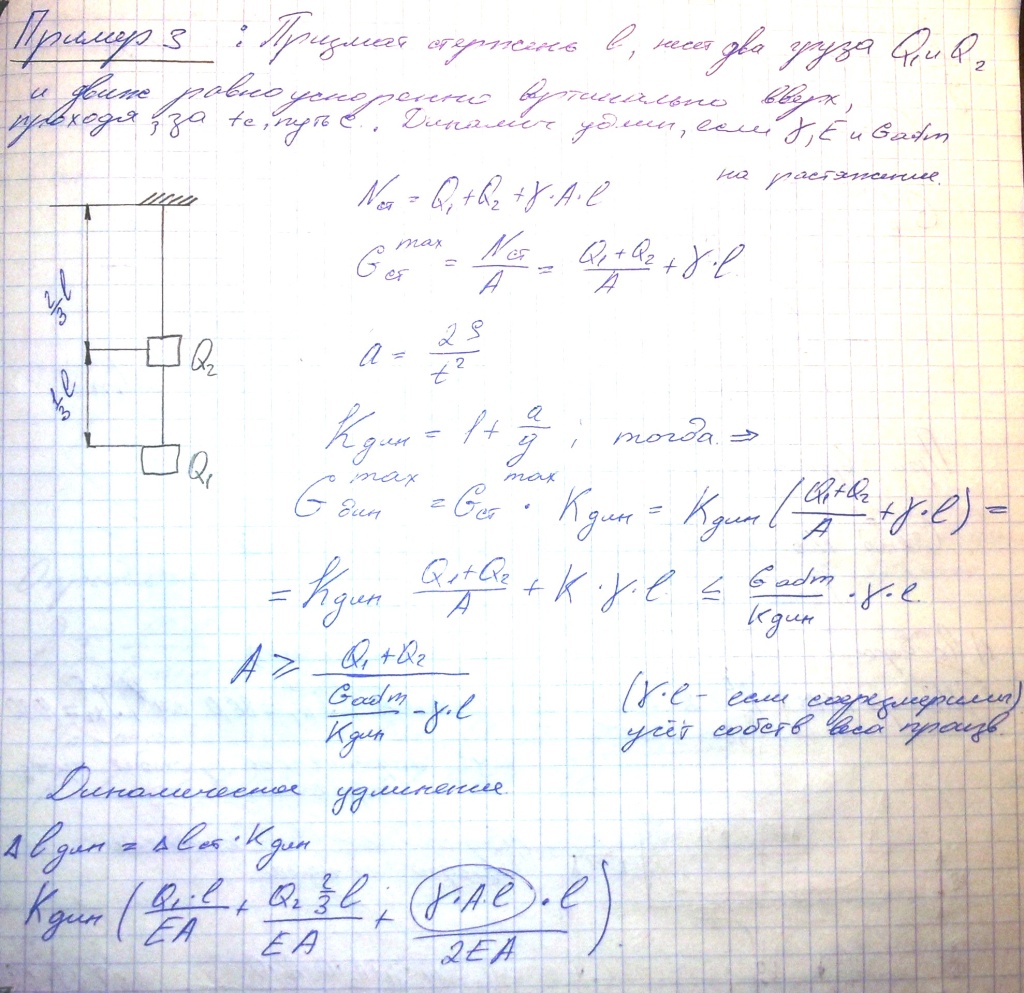 Пример 3 : Призмат стержень l, несёт два груза Q₁ и Q₂
и движ равноускоренно вертикально вверх,
проходя, за tc, путь С. Динамич удлин, если γ, E и Gadm
на растяжение.
Nст = Q₁ + Q₂ + γ·A·l
Gстᵐᵃˣ = Nст/A = (Q₁+Q₂)/A + γ·l
a = 2S/t²
2/3 l
Q₂
1/3 l
Q₁
Kдин = 1 + a/g ; тогда ⇒
Gдинᵐᵃˣ = Gстᵐᵃˣ · Kдин = Kдин ((Q₁+Q₂)/A + γ·l) =
= Kдин (Q₁+Q₂)/A + K·γ·l ≤ Gadm/Kдин · γ·l
A ≥ (Q₁+Q₂)/(Gadm/Kдин - γ·l)
(γ·l - если соразмеримы)
учёт собств веса произв.
Динамическое удлинение
Δlдин = Δlст · Kдин
Kдин (Q₁·l/EA + Q₂ 2/3 l/EA + γ·A·l·l/2EA)